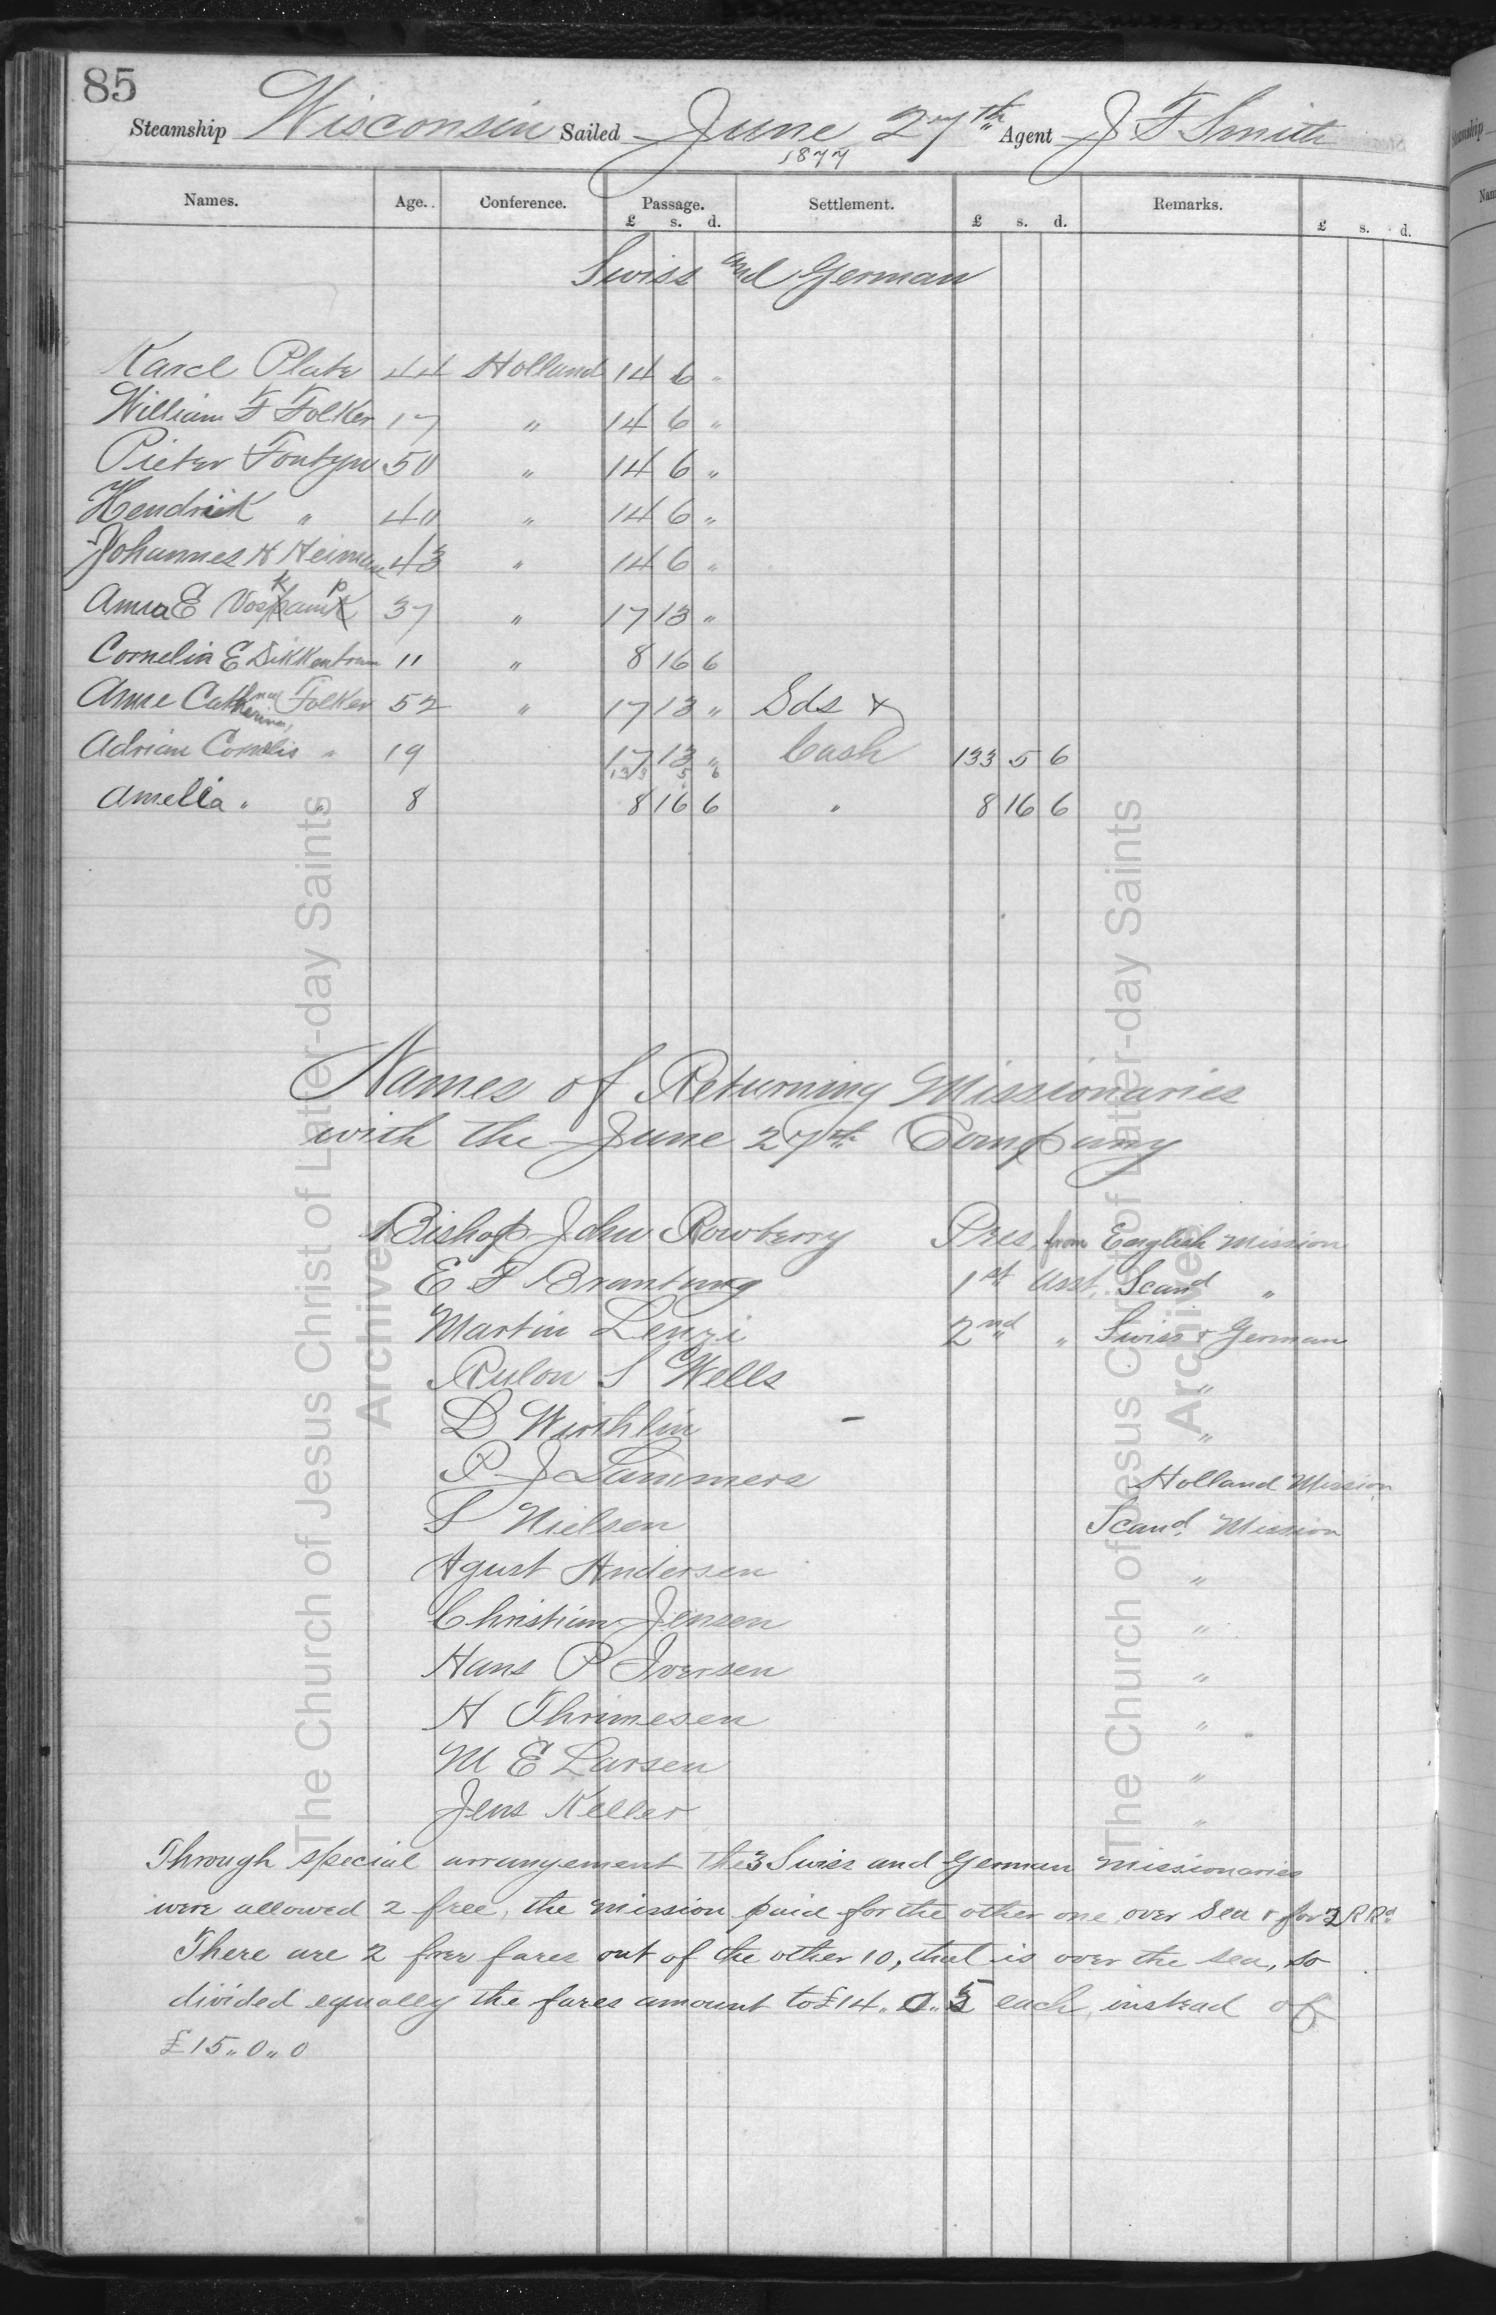 85
Steamship Wisconsin Sailed June 27th Agent J F Smith
1877
Names. Age. Conference. Passage. Settlement. Remarks.
£ s. d. £ s. d. £ s. d.
Swiss and German
Karel Plate 44 Holland 14 6 "
William F Folker 17 " 14 6 "
Pieter Fontyn 50 " 14 6 "
Hendrik " 40 " 14 6 "
Johannes H Heiman 43 " 14 6 "
Anna E Voskamp 37 " 17 13 "
Cornelia E Dikkentram 11 " 8 16 6
Anne Catherina Folker 52 " 17 13 " Sds &
Adrian Cornelis " 19 17 13 " Cash 133 5 6
133 5 6
Amelia " " 8 8 16 6 " 8 16 6
Names of Returning Missionaries
with the June 27th Company
Bishop John Rowberry Pres from English Mission
E F Brantung 1st Asst, Scand "
Martin Lenzi 2nd " Swiss & German
Rulon S Wells "
D Wirthlin - "
P J Lammers Holland Mission
S Nielsen Scand. Mission
Agust Andersen "
Christian Jensen "
Hans P Iversen "
H Thrimesen "
M E Larsen "
Jens Keller "
Through special arrangement the 3 Swiss and German Missionaries
were allowed 2 free, the mission paid for the other one over sea & for 3 R Rd
There are 2 free fares out of the other 10, that is over the sea, so
divided equally the fares amount to £14 .. 0 .. 5 each, instead of
£15 .. 0 .. 0
The Church of Jesus Christ of Latter-day Saints
Archives
The Church of Jesus Christ of Latter-day Saints
Archives
Steamship